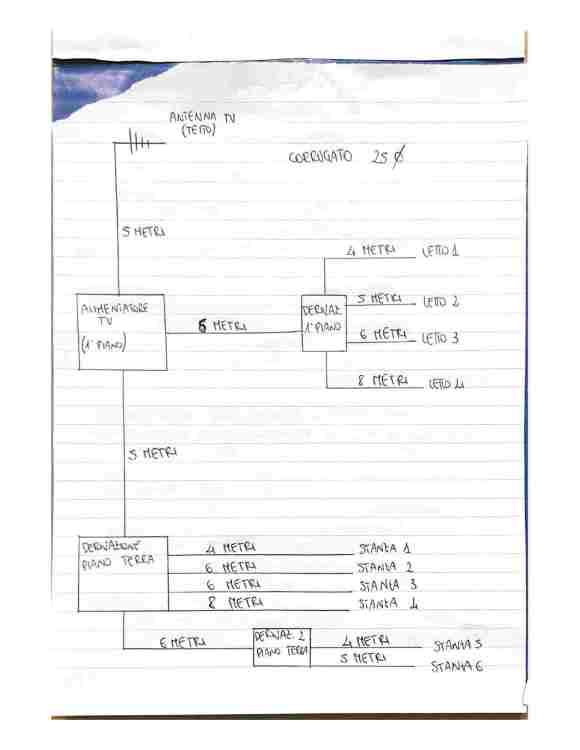 ANTENNA TV
(TETTO)
CORRUGATO 25 Ø
5 METRI
4 METRI LETTO 1
ALIMENTATORE
TV
(1° PIANO)
6 METRI
DERIVAZ.
1° PIANO
5 METRI LETTO 2
6 METRI LETTO 3
8 METRI LETTO 4
5 METRI
DERIVAZIONE
PIANO TERRA
4 METRI STANZA 1
6 METRI STANZA 2
6 METRI STANZA 3
8 METRI STANZA 4
6 METRI
DERIVAZ. 2
PIANO TERRA
4 METRI STANZA 5
5 METRI STANZA 6